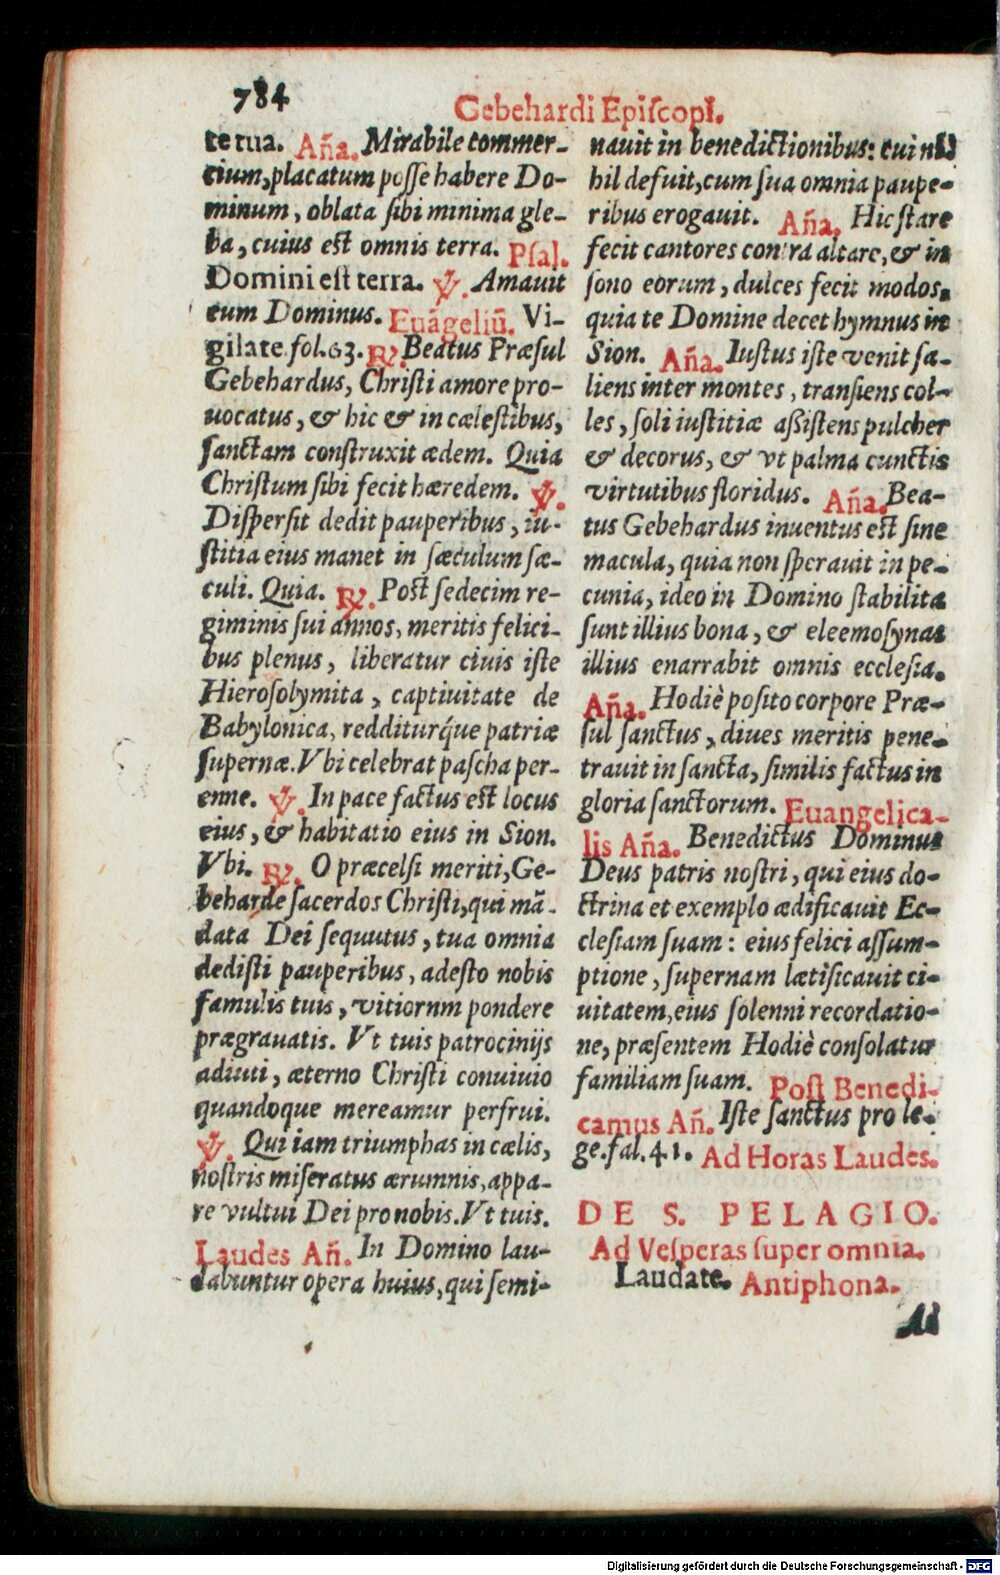 784
Gebehardi Epiſcopi.
te tua. Aña. Mirabile commer-
cium, placatum poſſe habere Do-
minum, oblata ſibi minima gle-
ba, cuius est omnis terra. Pſal.
Domini eſt terra. ℣. Amauit
eum Dominus. Euãgeliũ. Vi-
gilate fol. 63. ℟. Beatus Præſul
Gebehardus, Chriſti amore pro-
uocatus, & hic & in cæleſtibus,
ſanctam conſtruxit ædem. Quia
Chriſtum ſibi fecit hæredem. ℣.
Diſperſit dedit pauperibus, iu-
ſtitia eius manet in ſæculum ſæ-
culi. Quia. ℟. Post ſedecim re-
giminis ſui annos, meritis felici-
bus plenus, liberatur ciuis iſte
Hieroſolymita, captiuitate de
Babylonica, redditurq́ue patriæ
ſupernæ. Vbi celebrat paſcha per-
enne. ℣. In pace factus est locus
eius, & habitatio eius in Sion.
Vbi. ℟. O præcelſi meriti, Ge-
beharde ſacerdos Chriſti, qui mã-
data Dei ſequutus, tua omnia
dediſti pauperibus, adeſto nobis
famulis tuis, vitiornm pondere
prægrauatis. Vt tuis patrocinijs
adiuti, æterno Chriſti conuiuio
quandoque mereamur perfrui.
℣. Qui iam triumphas in cælis,
noſtris miſeratus ærumnis, appa-
re vultui Dei pro nobis. Vt tuis.
Laudes Añ. In Domino lau-
dabuntur opera huius, qui ſemi-
nauit in benedictionibus: cui ni-
hil defuit, cum ſua omnia paupe-
ribus erogauit. Aña. Hic ſtare
fecit cantores contra altare, & in
ſono eorum, dulces fecit modos,
quia te Domine decet hymnus in
Sion. Aña. Iuſtus iſte venit ſa-
liens inter montes, tranſiens col-
les, ſoli iuſtitiæ aßiſtens pulcher
& decorus, & vt palma cunctis
virtutibus floridus. Aña. Bea-
tus Gebehardus inuentus est ſine
macula, quia non ſperauit in pe-
cunia, ideo in Domino ſtabilita
ſunt illius bona, & eleemoſynas
illius enarrabit omnis eccleſia.
Aña. Hodiè poſito corpore Præ-
ſul ſanctus, diues meritis pene-
trauit in ſancta, ſimilis factus in
gloria ſanctorum. Euangelica-
lis Aña. Benedictus Dominus
Deus patris noſtri, qui eius do-
ctrina et exemplo ædificauit Ec-
cleſiam ſuam: eius felici aſſum-
ptione, ſupernam lætificauit ci-
uitatem, eius ſolenni recordatio-
ne, præſentem Hodiè conſolatur
familiam ſuam. Poſt Benedi-
camus Añ. Iſte ſanctus pro le-
ge. fal. 41. Ad Horas Laudes.
DE S. PELAGIO.
Ad Veſperas ſuper omnia.
Laudate. Antiphona.
Digitalisierung gefördert durch die Deutsche Forschungsgemeinschaft - DFG